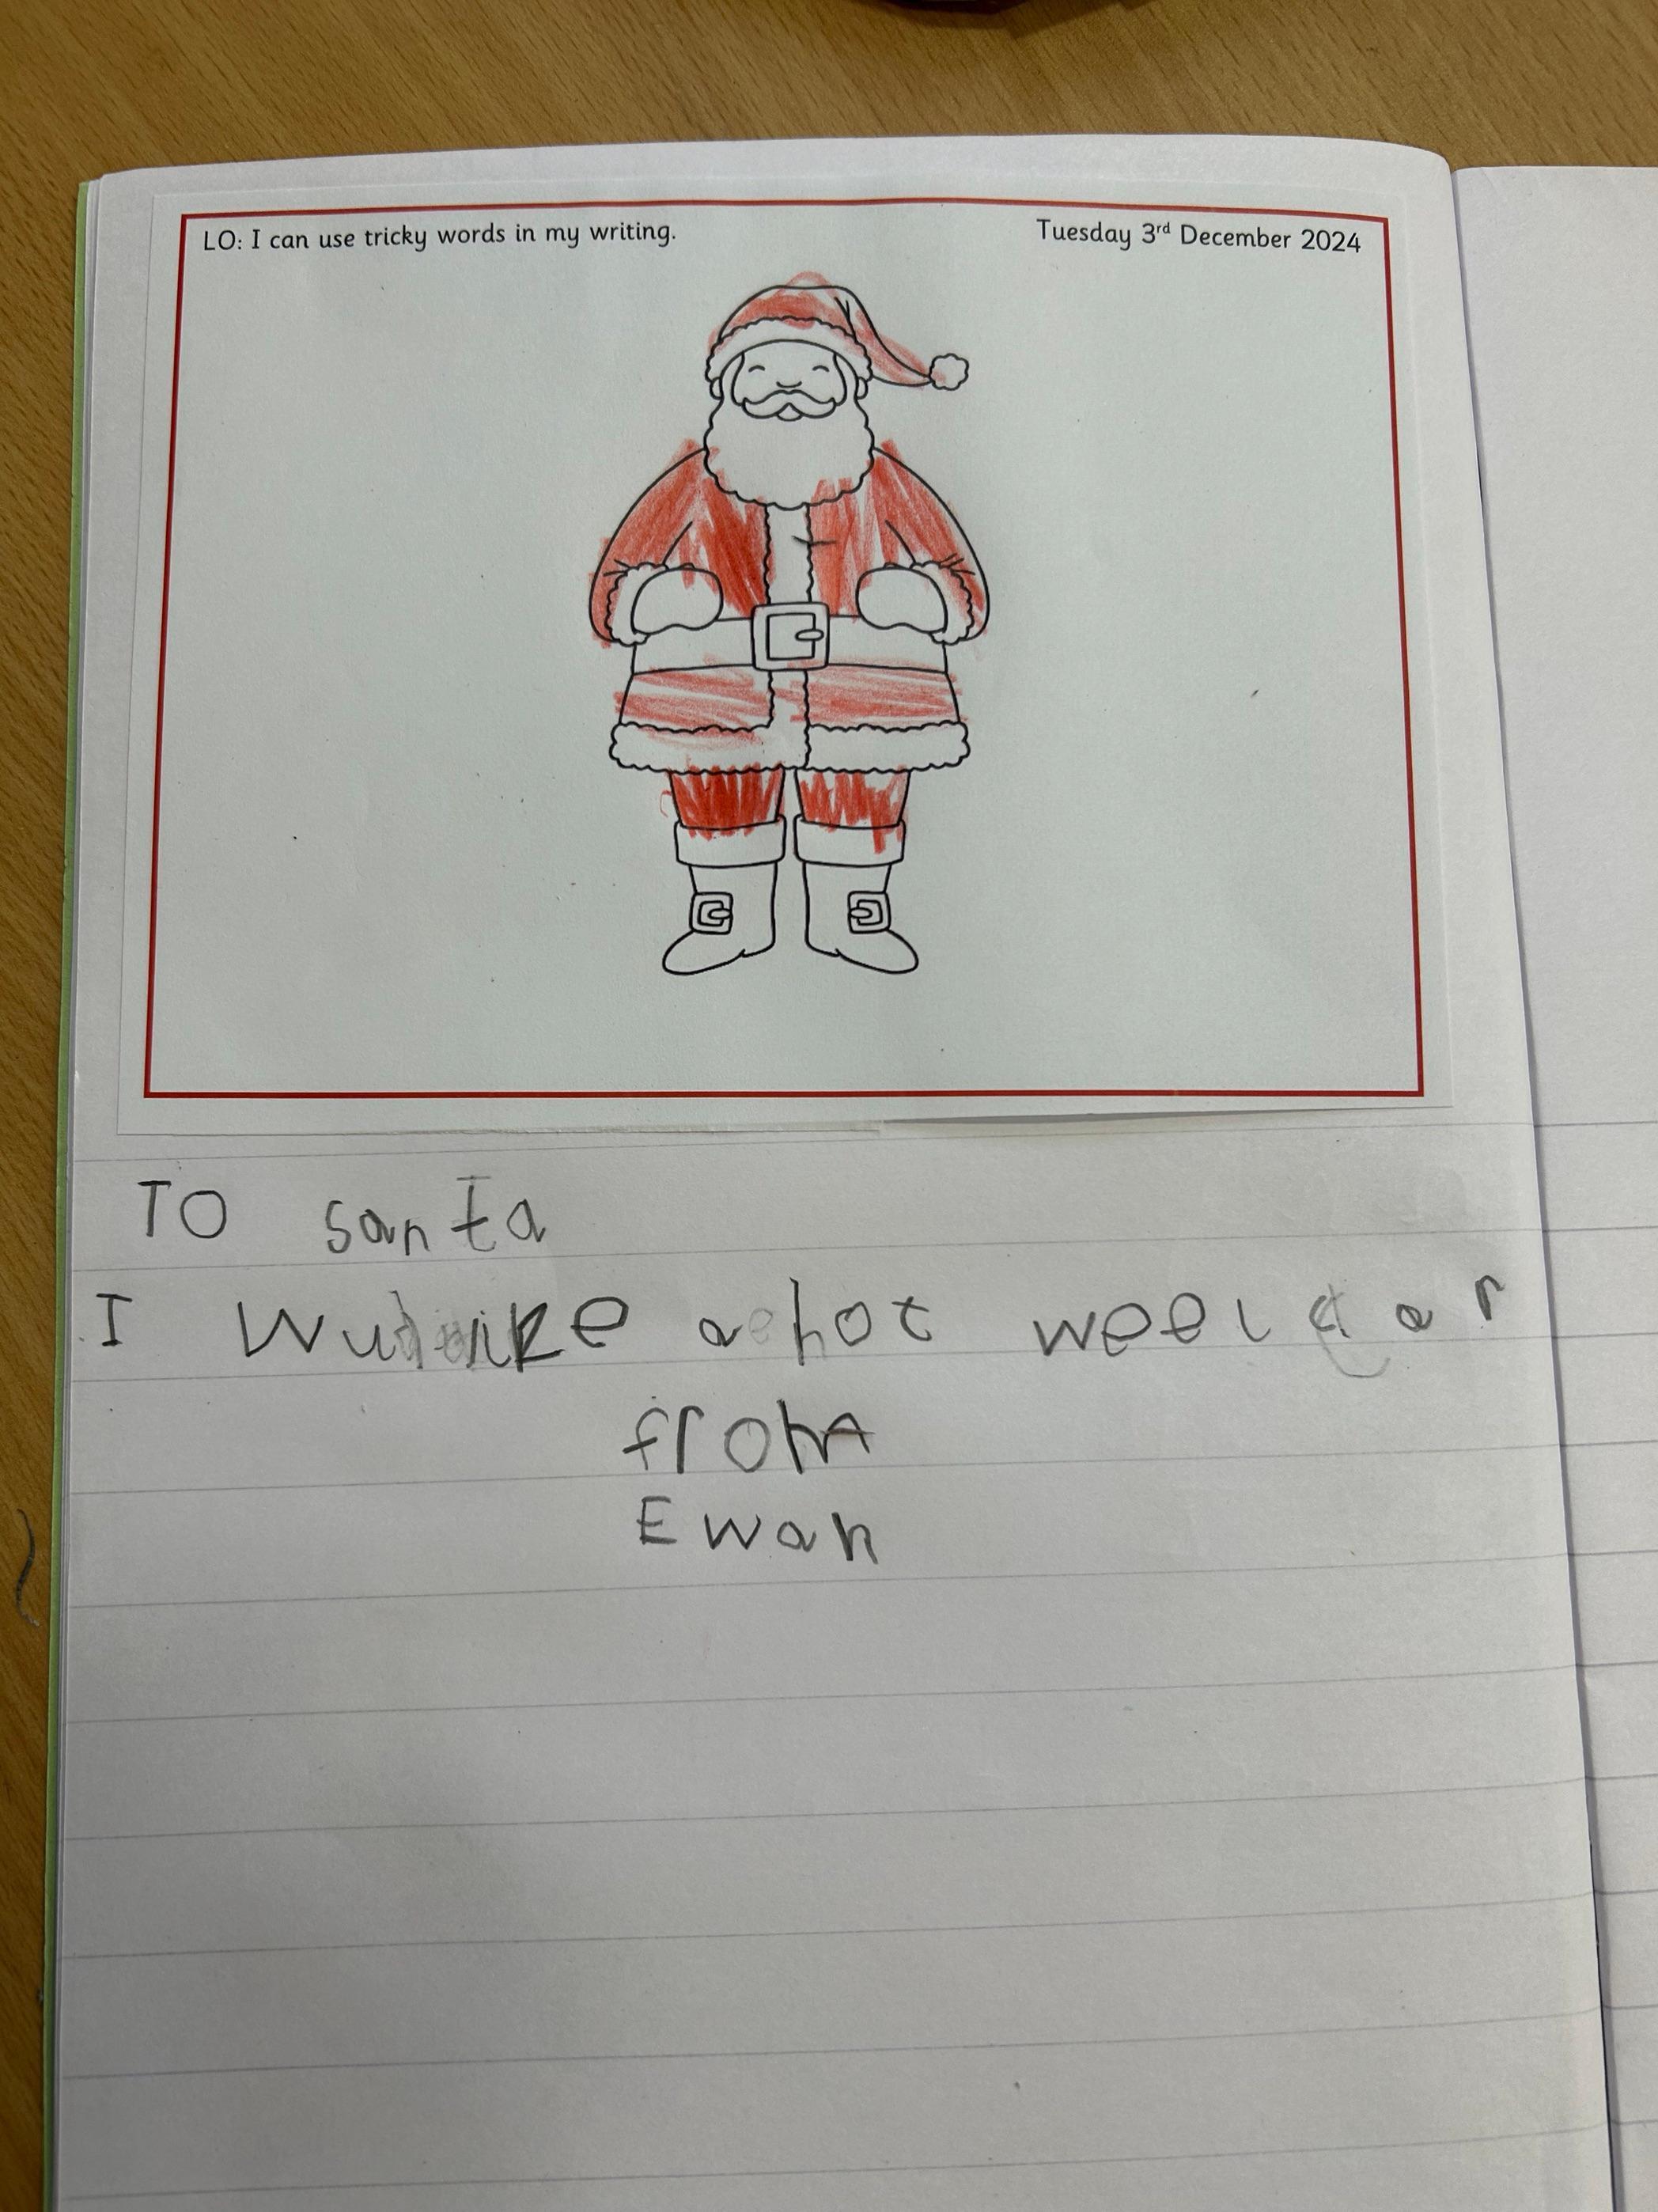 LO: I can use tricky words in my writing.
Tuesday 3rd December 2024
TO santa
I wulike a hot weel car
from
Ewan